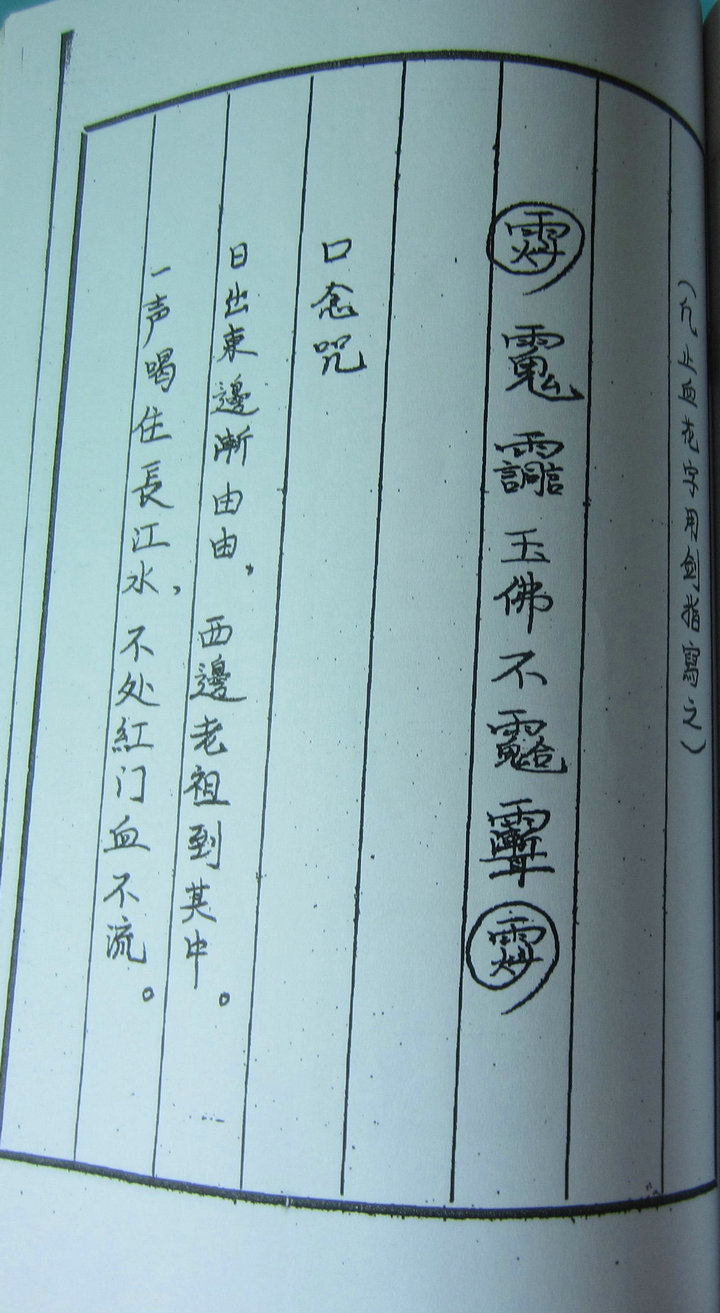 （凡止血花字用剑指寫之）
玉佛不
口念咒
日出東邊漸由由，西邊老祖到其中。
一声喝住長江水，不处紅门血不流。